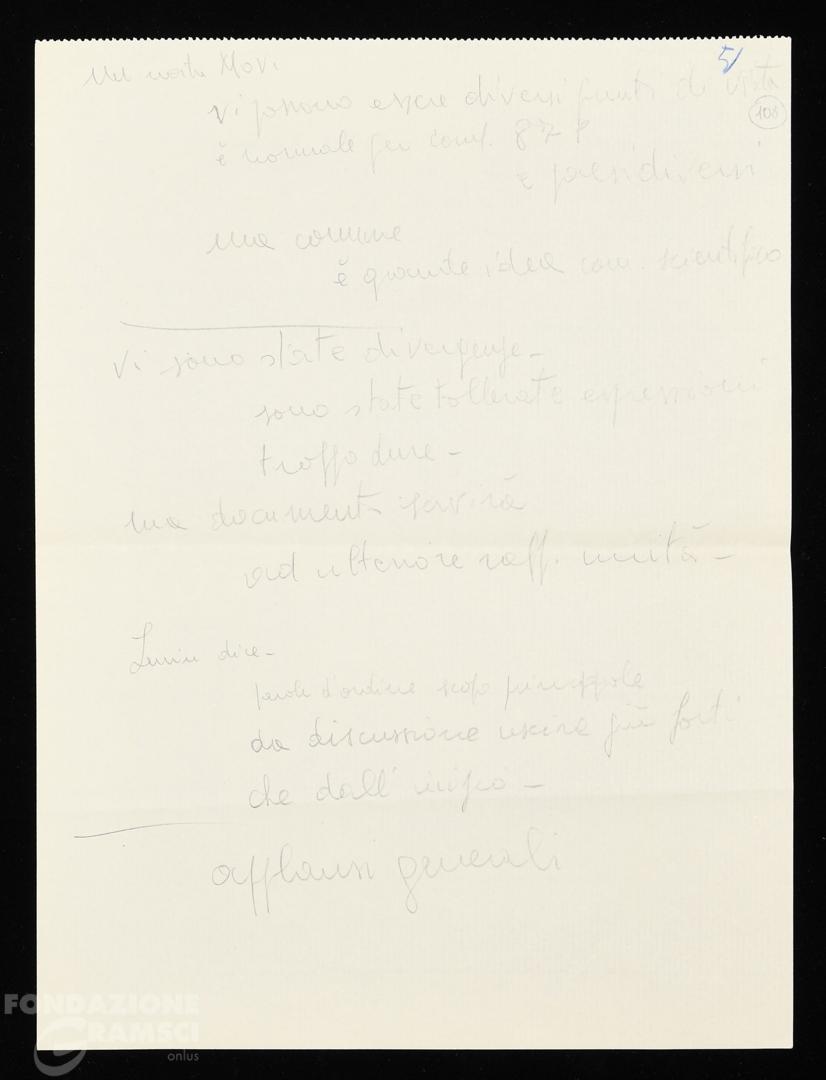 5/
Nel nostro Movi.
108
vi possono essere diversi punti di vista
è normale per com. 87 P
e paesi diversi
ma comune
è grande idea com. scientifico
Vi sono state divergenze -
sono state tollerate espressioni
troppo dure -
ma documento servirà
ad ulteriore raff. unità -
Lenin dice -
parole d'ordine scopo principale
da discussione uscire più forti
che dall'inizio -
applausi generali
FONDAZIONE
GRAMSCI
onlus